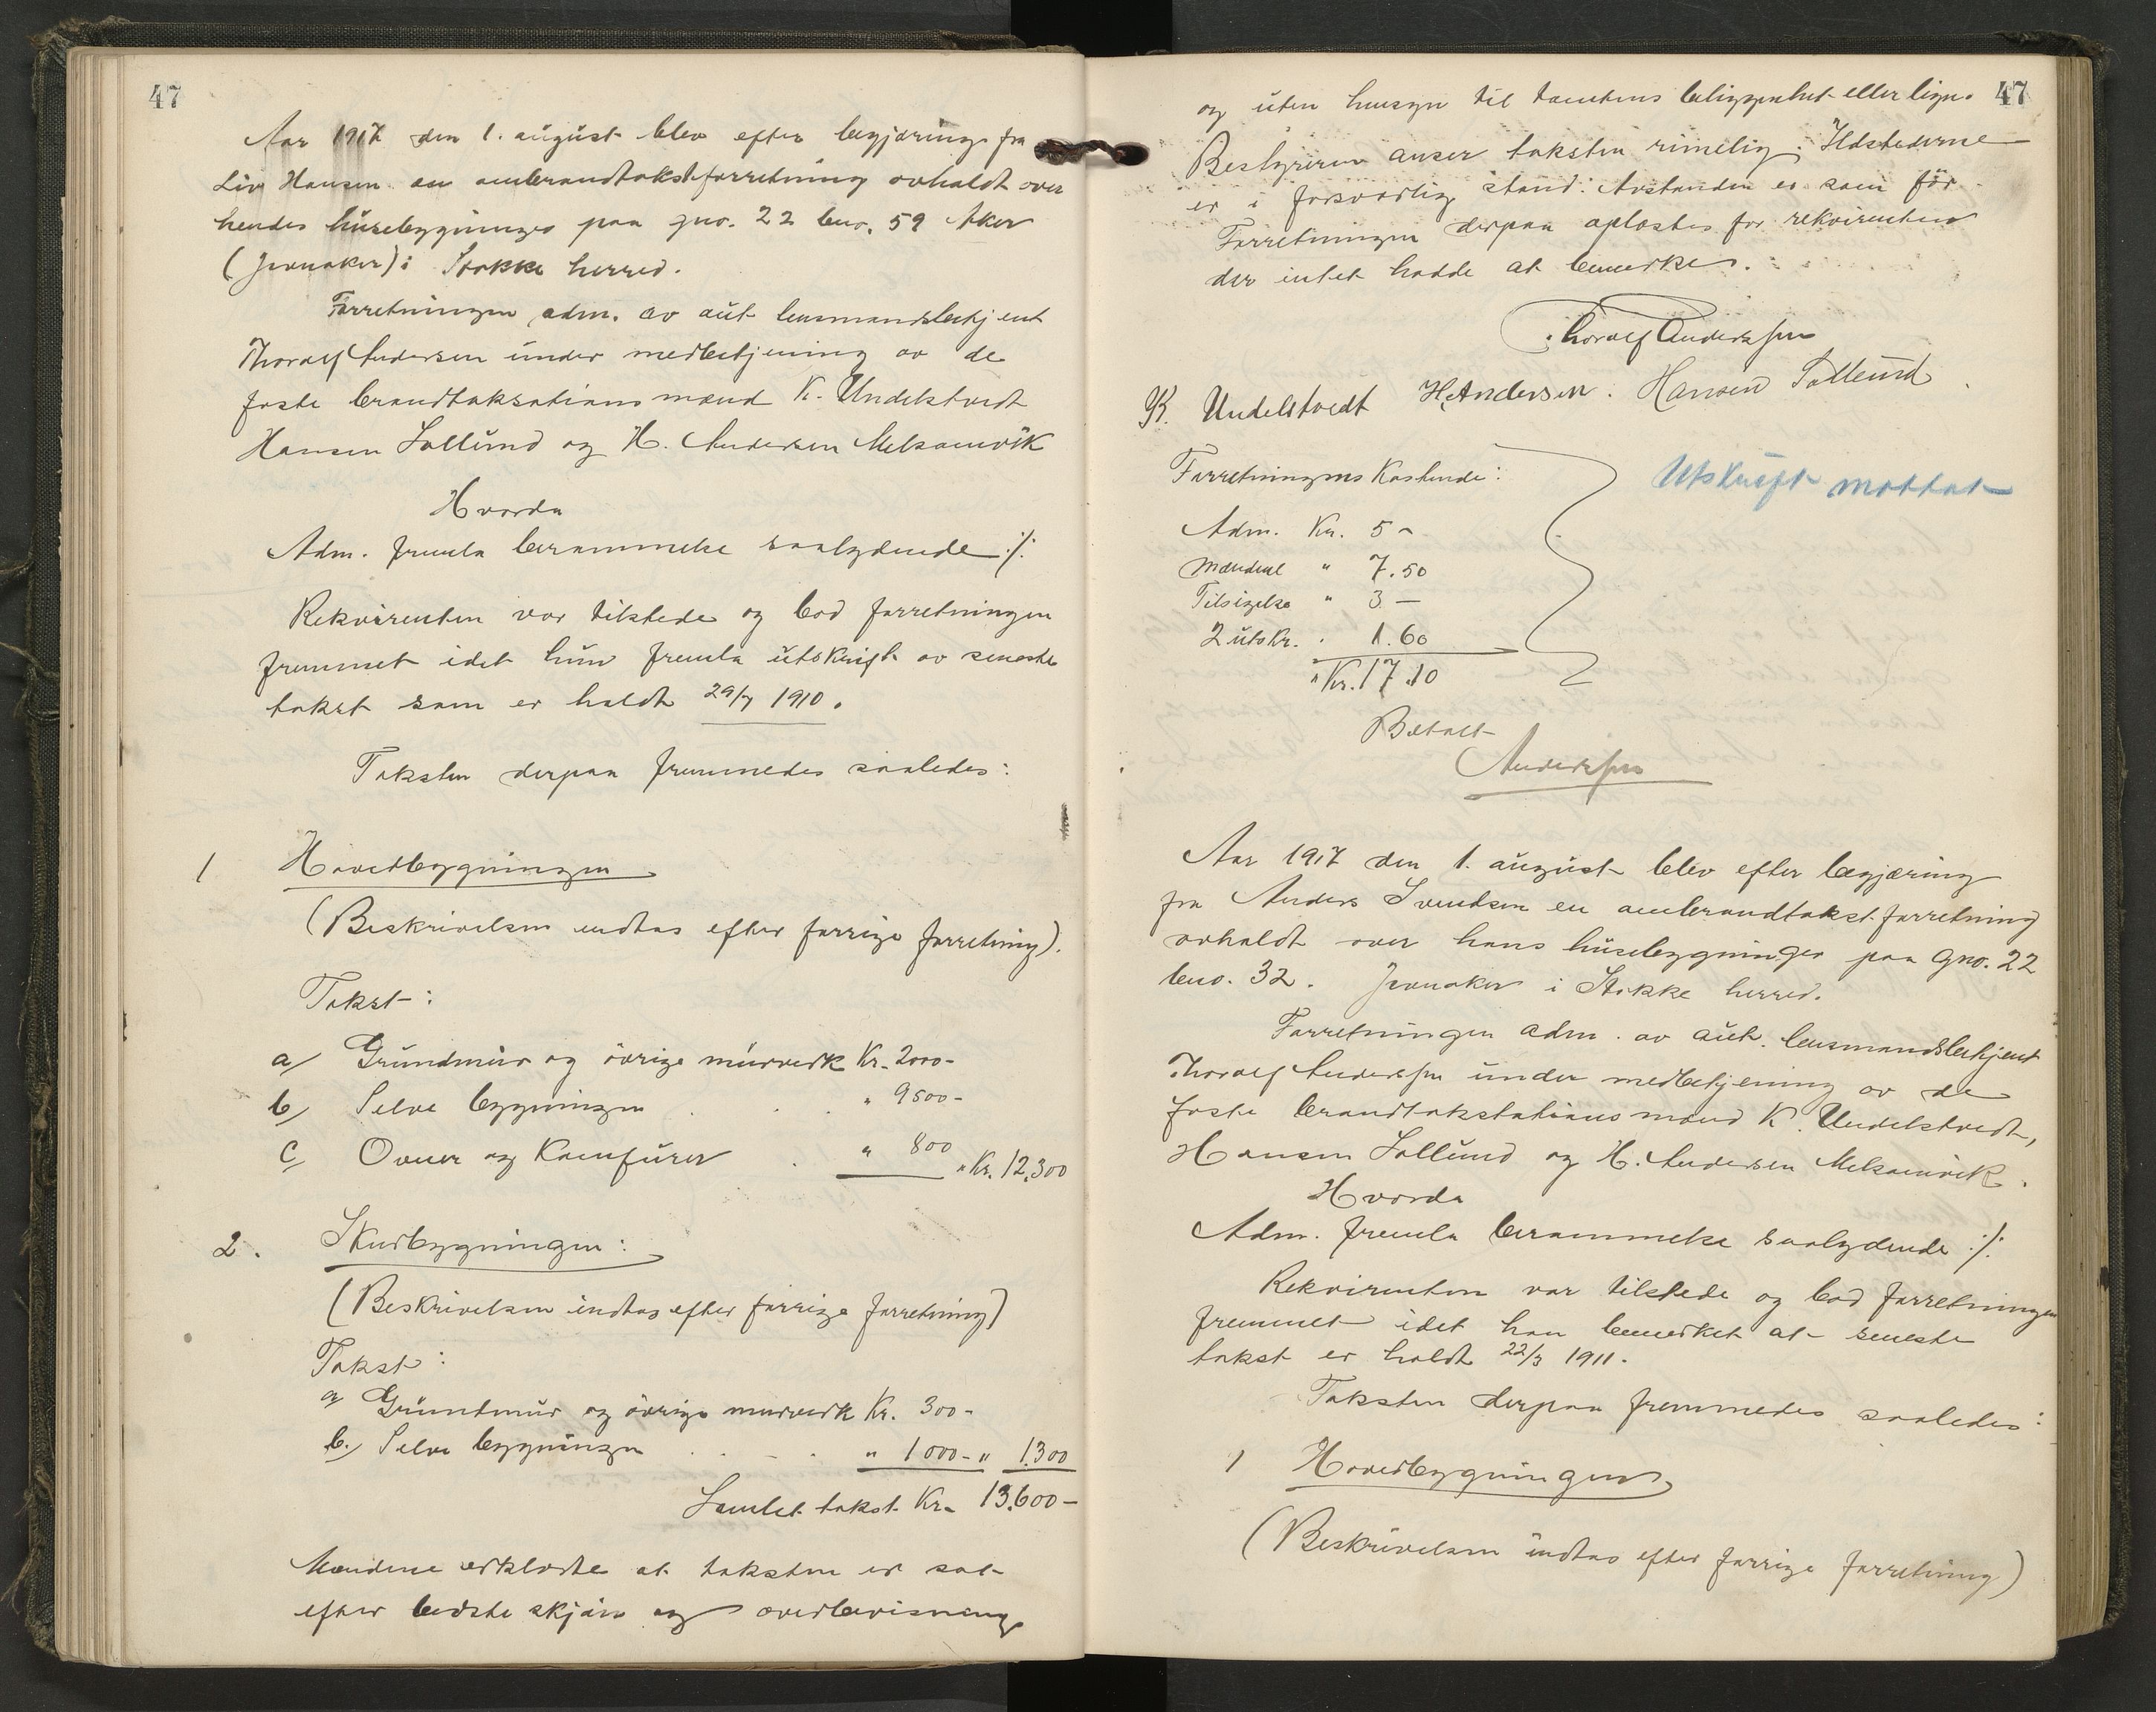 47
Aar 1917 den 1. august blev efter begjæring fra
Liv Hansen en ombrandtakstforretning avholdt over
hendes husebygninger paa gno. 22 bno. 59 Aker
(Jernaker) i Stokke herred.
Forretningen adm. av aut lensmandsbetjent
Thoralf Andersen under medbetjening av de
faste brandtaksations mænd K. Undelstvedt
Hansen Sollund og H. Andersen Melsomvik
Hvorda
Adm. fremla berammelse saalydende ./.
Rekvirenten var tilstede og bad forretningen
fremmet idet hun fremla utskrift av seneste
takst som er holdt 29/7 1910.
Taksten derpaa fremmedes saaledes:
1 Hovedbygningen
(Beskrivelsen indtas efter forrige forretning).
Takst:
a/ Grundmur og övrige murverk Kr. 2000-
b/ Selve bygningen " 9500-
c/ Ovner og Komfurer " 800 " Kr. 12,300
2. Skurbygningen:
(Beskrivelsen indtas efter forrige forretning)
Takst:
a/ Grundmur og övrige murverk Kr. 300-
b./ Selve bygningen " 1000- " 1300
Samlet takst Kr. 13.600-
Mændene erklærte at taksten er sat
efter bedste skjön og overbevisning
og uten hensyn til tomtens beliggenhet eller lign. 47
Bestyreren anser taksten rimelig. Ildstederne
er i forsvarlig stand. Avstanden er som för.
Forretningen derpaa oplæstes for rekvirenten
der intet hadde at bemerke.
Thoralf Anderssen
K. Undelstvedt H. Andersen. Hansen Sollund
Forretningens Kostende:
Utskrift mottat
Adm. Kr. 5 -
Mændene " 7.50
Tilsigelse " 3 -
2 utskr. " 1.60
" Kr. 17.10
Betalt
Anderssen
Aar 1917 den 1. august blev efter begjæring
fra Anders Svendsen en ombrandtakst.forretning
avholdt over hans husebygninger paa gno. 22
bno. 32. Jernaker i Stokke herred.
Forretningen adm. av aut. lensmandsbetjent
Thoralf Anderssen under medbetjening av de
faste brandtakstations mænd K. Undelstvedt,
Hansen Sollund og H. Andersen Melsomvik.
Hvorda
Adm. fremla berammelse saalydende ./.
Rekvirenten var tilstede og bad forretningen
fremmet idet han bemerket at seneste
takst er holdt 22/3 1911.
Taksten derpaa fremmedes saaledes:
1 Hovedbygningen
(Beskrivelsen indtas efter forrige forretning)